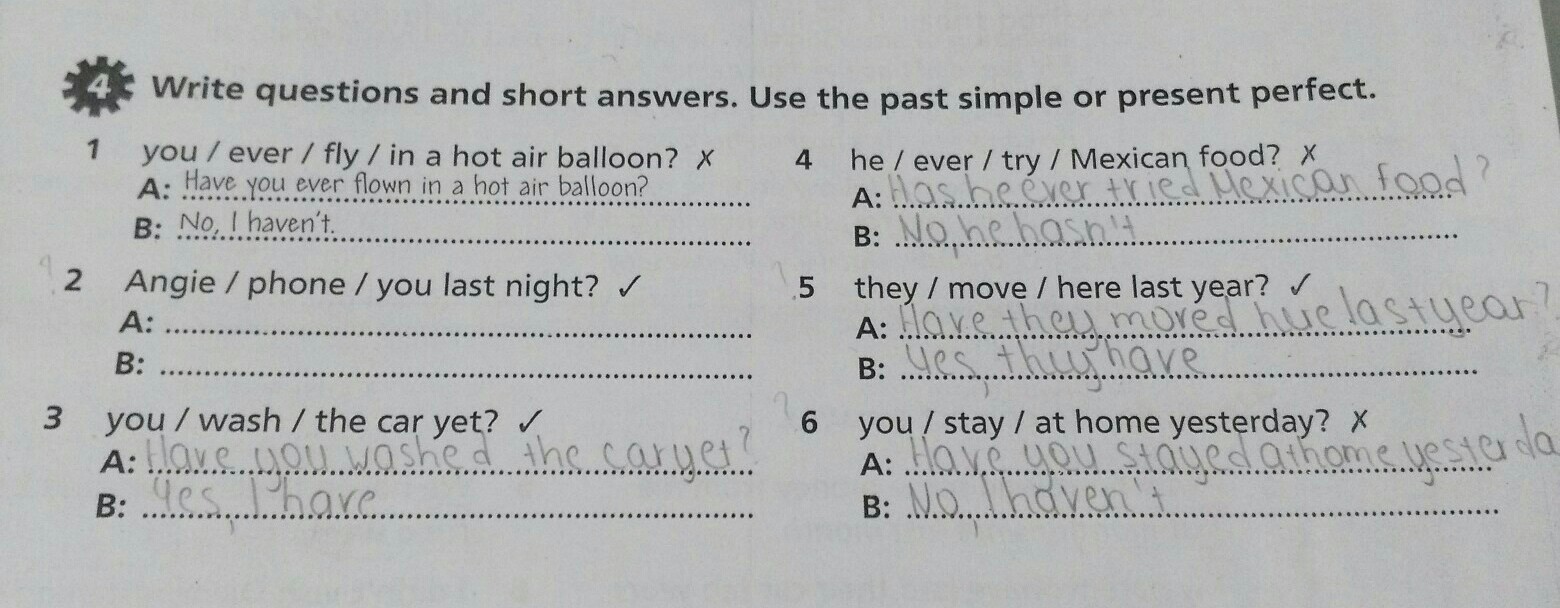 4 Write questions and short answers. Use the past simple or present perfect.
1 you / ever / fly / in a hot air balloon? ✗
A: Have you ever flown in a hot air balloon?
B: No, I haven't.
? 2 Angie / phone / you last night? ✓
A:
B:
3 you / wash / the car yet? ✓
A: Have you washed the car yet?
B: Yes, I have
4 he / ever / try / Mexican food? ✗
A: Has he ever tried Mexican food?
B: No, he hasn't
? 5 they / move / here last year? ✓
A: Have they moved hue last year?
B: Yes, they have
? 6 you / stay / at home yesterday? ✗
A: Have you stayed at home yesterda
B: No, I haven't